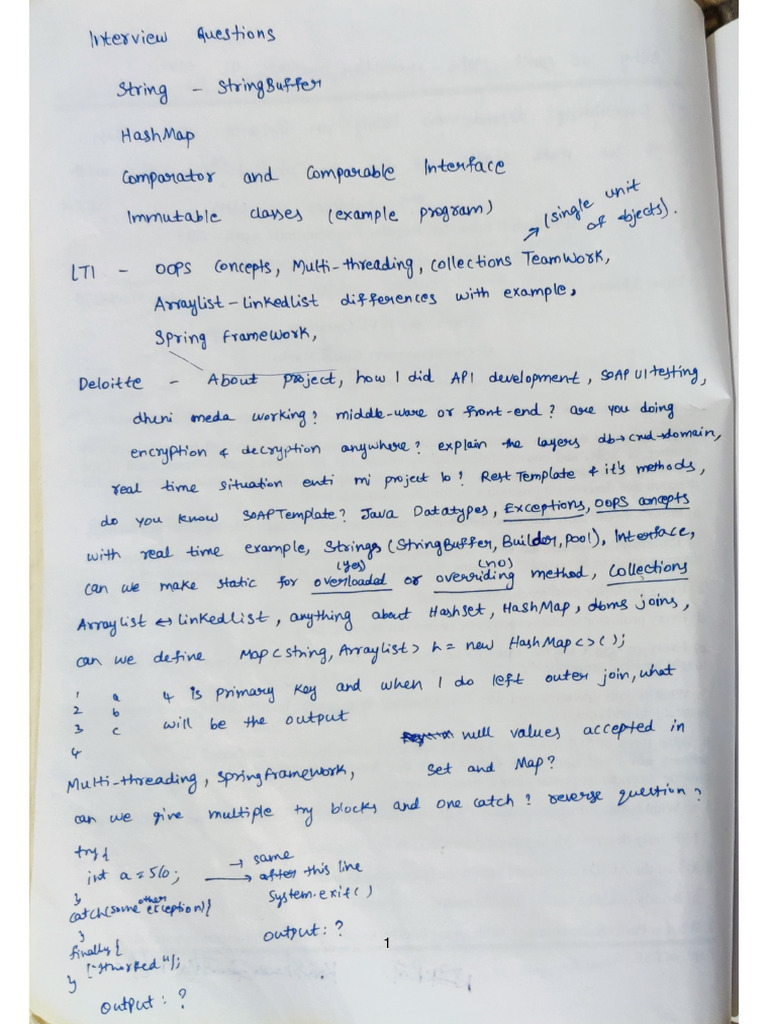 Interview Questions
String - StringBuffer
HashMap
Comparator and Comparable Interface
Immutable classes (example program)
(single unit
of objects).
LTI - OOPS Concepts, Multi-threading, Collections TeamWork,
Arraylist-Linkedlist differences with example,
Spring Framework,
Deloitte - About project, how I did API development, SOAP UI testing,
dheni meda working? middle-ware or front-end? are you doing
encryption & decryption anywhere? explain the layers db→cmd→domain,
real time situation enti mi project lo? Rest Template & it's methods,
do you know SOAPTemplate? Java Datatypes, Exceptions, OOPS concepts
with real time example, Strings (StringBuffer, Builder, pool), Interface,
(yes) (no)
can we make static for overloaded or overriding method, Collections
Arraylist ↔ linkedlist, anything about Hashset, HashMap, dbms joins,
can we define Map<string, Arraylist> h = new HashMap<>();
1 a 4 is primary key and when I do left outer join, what
2 b will be the output
3 c
4
null values accepted in
Set and Map?
Multi-threading, Springframework,
can we give multiple try blocks and one catch? reverse question?
try{
int a = 5/0; → same
→ after this line
System.exit()
}
catch(some other exception){
}
output: ?
finally{
}
output: ?
1